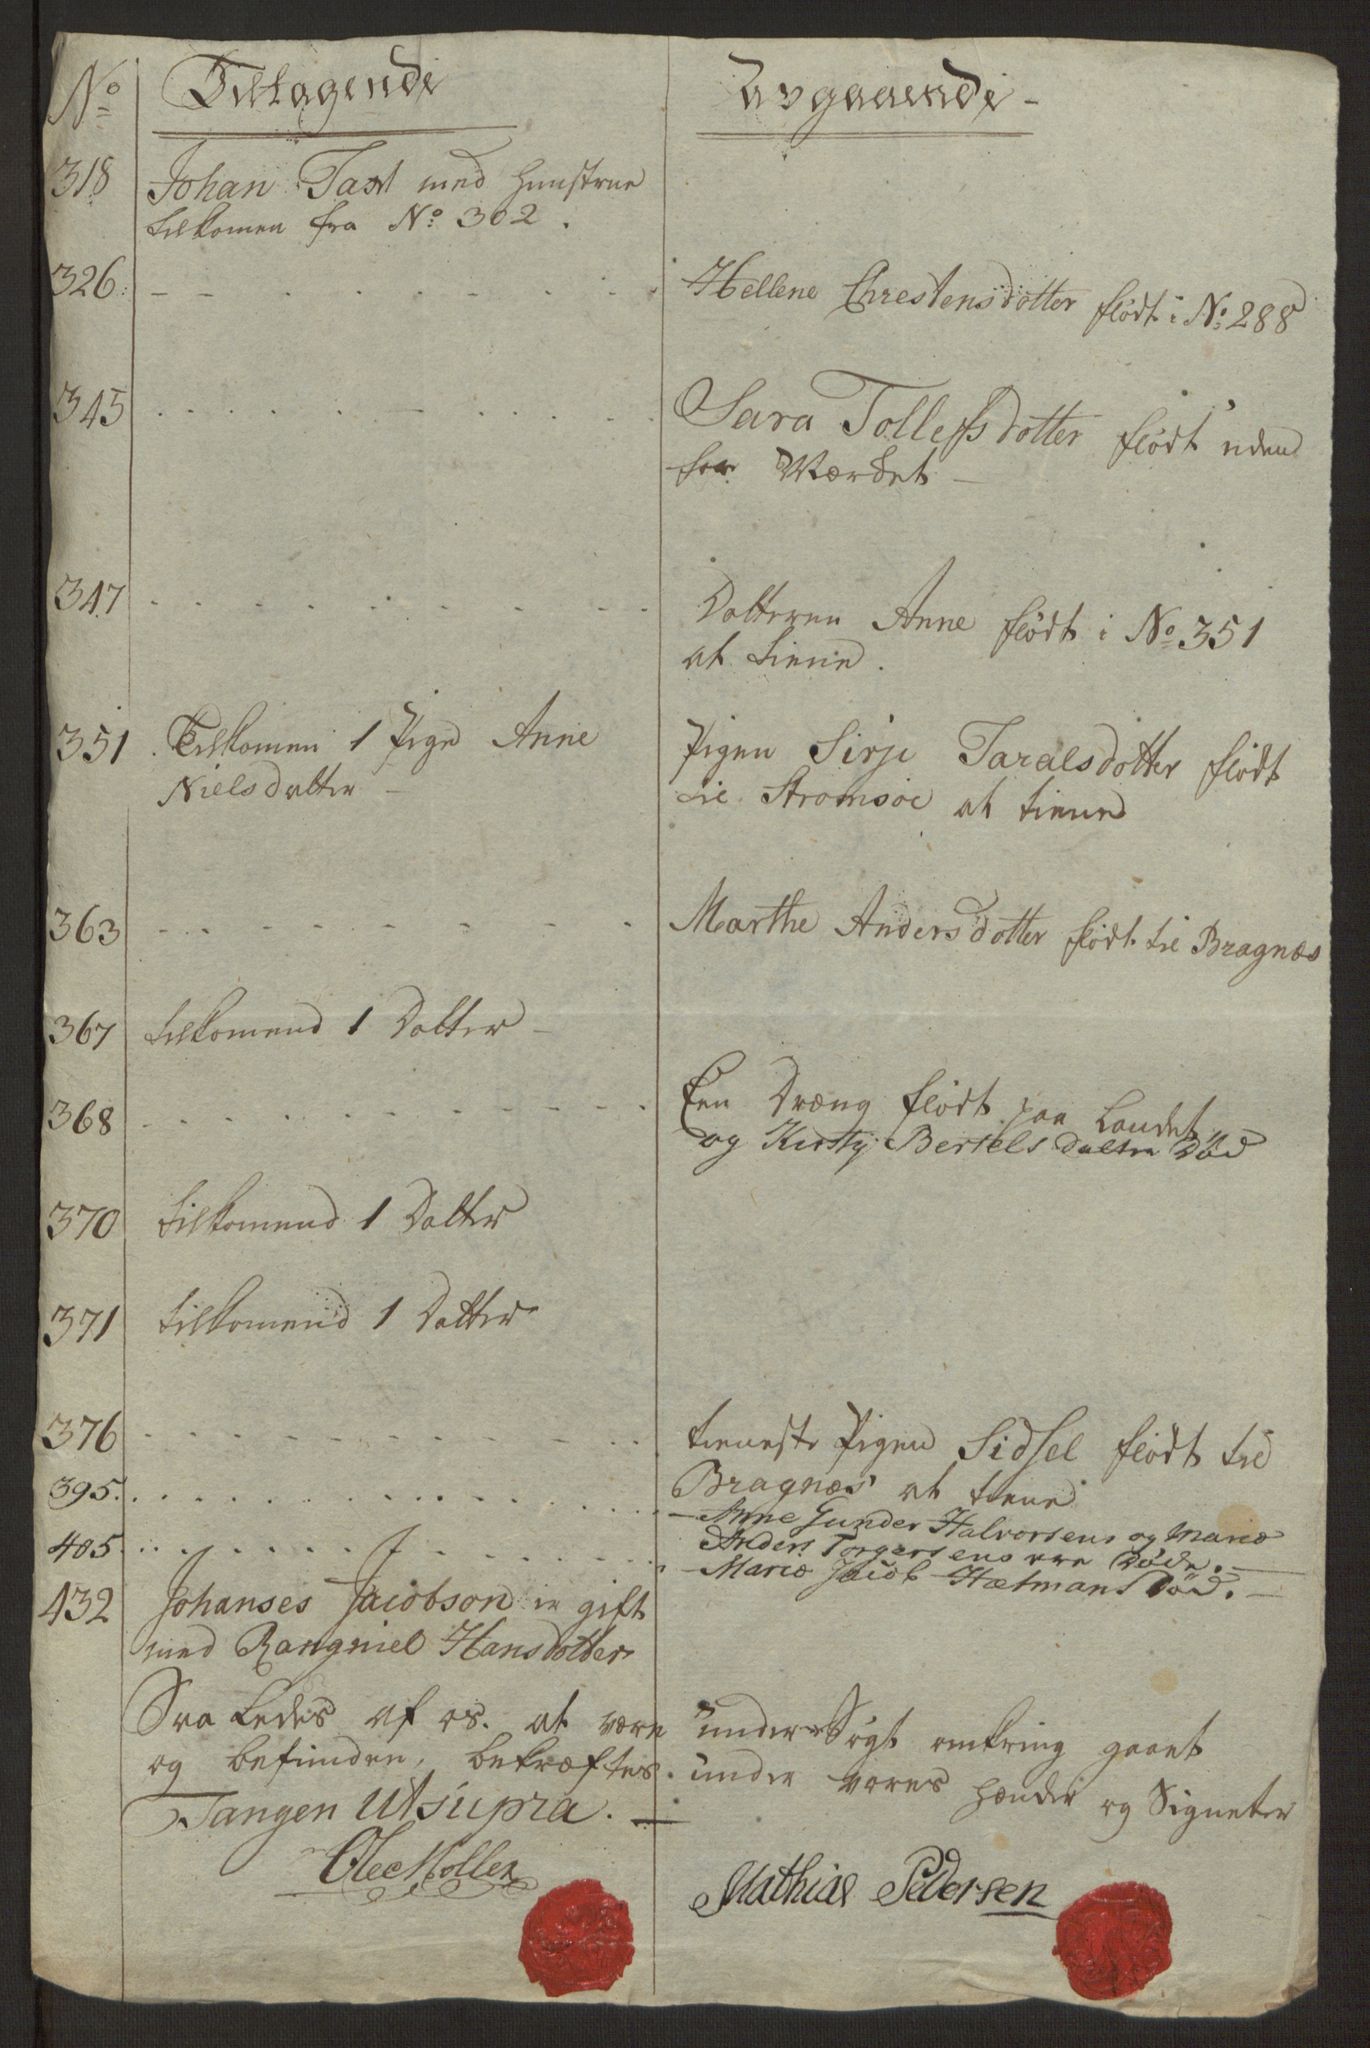 No Tiltagende Avgaaende -
318 Johan Taxt med Hunstrue
tilkomen fra No 302.
326 Hellene Chrestensdotter flödt i No 288
345 Sara Tollefsdotter flödt uden
for Værdet -
347 Datteren Anne flödt i No 351
at tiene.
351 Tilkomen 1 Pige Anne
Nielsdatter -
Pigen Sirje Taralsdotter flödt
til Stromsöe at tiene
363 Marthe Andersdotter flödt til Bragnæs
367 tilkomend 1 Datter -
368 Een Dræng flödt paa Landet
og Kirsty Bertels Datter Död
370 tilkomend 1 Datter
371 tilkomend 1 Datter
376 tieneste Pigen Sidsel flödt til
Bragnæs at tiene
395. - Anne Gunder Halvorsens og Marie
Anders Torgersens ere Döde. -
405. - Marie Jacob Hætmans Död. -
432 Johanses Jacobson er gift
med Rangniel Hansdotter
Saa Ledes af os. at være under Sögt omkring gaaet
og befunden, bekræftes. under vores Hænder og Signeter
Tangen Utsupra. -
Ole Moller
Mathias Pedersen